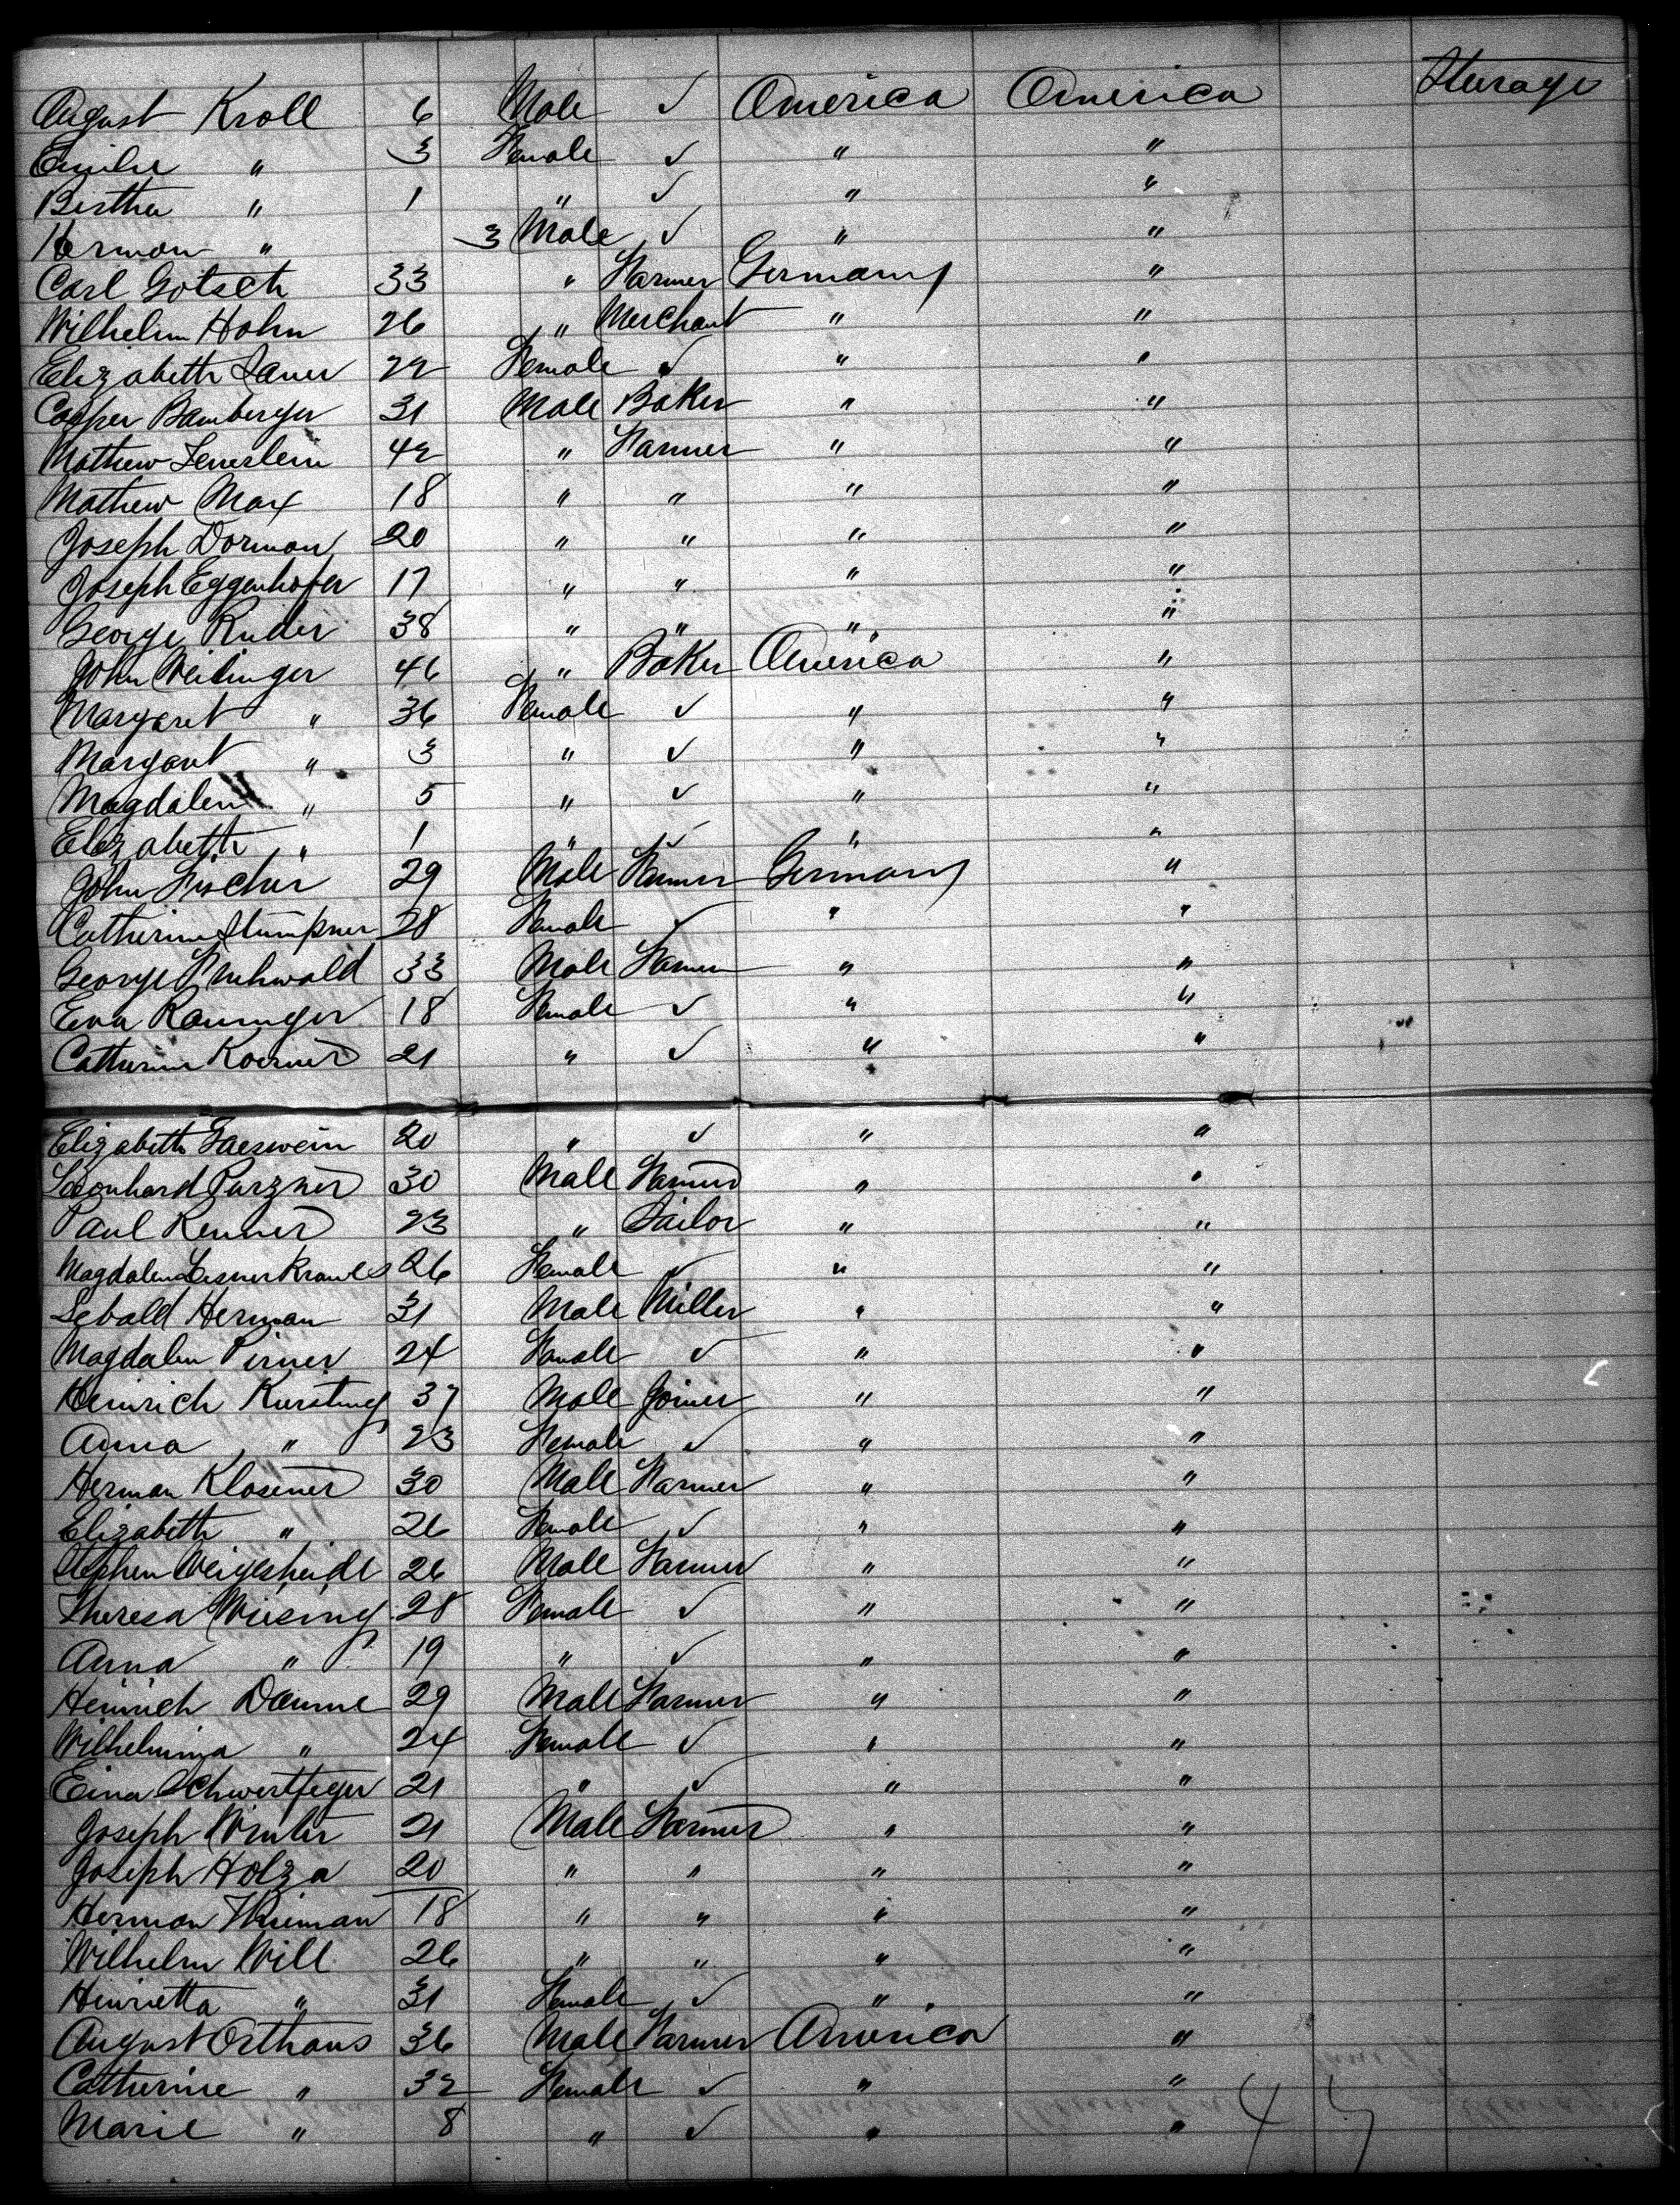 August Kroll 6 Male ✓ America America Sterage
Emilie " 3 Female ✓ " "
Bertha " 1 " ✓ " "
Herman " 3 Male ✓ " "
Carl Gotsch 33 " Farmer Germany "
Wilhelm Hohn 26 " Merchant " "
Elizabeth 22 Female ✓ " "
Casper Bamberger 31 Male Baker " "
Mathew 42 " Farmer " "
Mathew Max 18 " " " "
Joseph Dorman 20 " " " "
Joseph Eggenhofer 17 " " " "
George 38 " " " "
John Weidinger 46 " Baker America "
Margaret " 36 Female ✓ " "
Margaret " 3 " ✓ " "
Magdalen " 5 " ✓ " "
Elizabeth " 1 " ✓ " "
John Fischer 29 Male Farmer Germany "
Catherine Stumpner 28 Female ✓ " "
George 33 Male Farmer " "
Eva 18 Female ✓ " "
Catherine Koerner 21 " ✓ " "
Elizabeth 20 " ✓ " "
Leonhard Purzner 30 Male Farmer " "
Paul Renner 23 " Tailor " "
Magdalen 26 Female ✓ " "
Sebald Herman 31 Male Miller " "
Magdalen Pirner 24 Female ✓ " "
Heinrich Kuersting 37 Male Joiner " "
Anna " 23 Female ✓ " "
Herman Klosener 30 Male Farmer " "
Elizabeth " 26 Female ✓ " "
Stephen Weigesheide 26 Male Farmer " "
Theresa Wiesing 28 Female ✓ " "
Anna " 19 " ✓ " "
Heinrich Daume 29 Male Farmer " "
Wilhelmina " 24 Female ✓ " "
Schwertfeger 21 " ✓ " "
Joseph Winter 21 Male Farmer " "
Joseph Holza 20 " " " "
Herman 18 " " " "
Wilhelm Will 26 " " " "
Henrietta " 31 Female ✓ " "
August Orthaus 36 Male Farmer America "
Catherine " 32 Female ✓ " "
Marie " 8 " ✓ " "